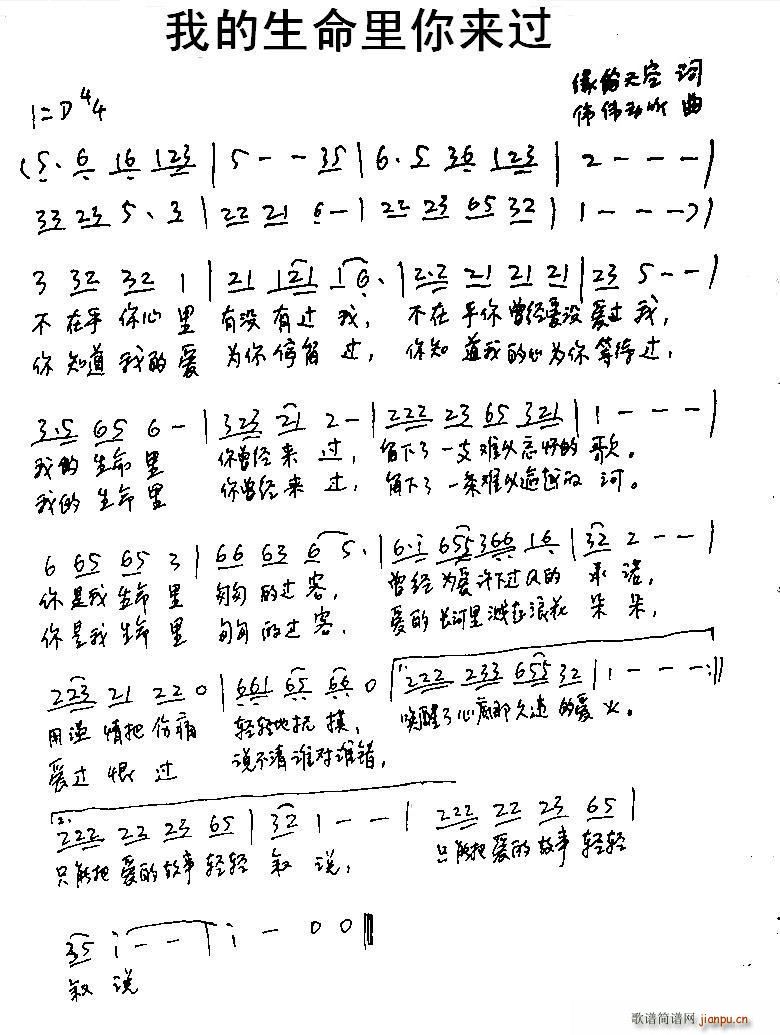 我的生命里你来过
词
曲
1=D 4/4
(5· 6 16 123 | 5 - - 35 | 6· 5 36 123 | 2 - - - |
33 23 5· 3 | 22 21 6 - | 22 23 65 32 | 1 - - -) |
3 32 32 1 | 21 121 16· | 2·2 21 21 21 | 23 5 - - |
不在乎你心里 有没有过我, 不在乎你曾经爱没爱过我,
你知道我的爱 为你停留过, 你知道我的心为你等待过,
3·5 65 6 - | 323 21 2 - | 222 23 65 321 | 1 - - - |
我的生命里 你曾经来过, 留下了一支难以忘怀的歌。
我的生命里 你曾经来过, 留下了一条难以逾越的河。
6 65 65 3 | 66 63 6 5· | 6·i 655 366 16 | 32 2 - - |
你是我生命里 匆匆的过客, 曾经为爱许下过的 承诺,
你是我生命里 匆匆的过客, 爱的长河里溅起浪花朵朵,
223 21 22 0 | 661 65 66 0 | 1. 222 233 655 32 | 1 - - - :||
用温情把伤痛 轻轻地抚摸, 唤醒了心底那久违的爱火。
爱过恨过 说不清谁对谁错,
2. 222 23 23 65 | 32 1 - - | 222 22 23 65 |
只能把爱的故事轻轻叙说, 只能把爱的故事轻轻
35 i - - | i - 0 0 ||
叙说
歌谱简谱网
jianpu.cn